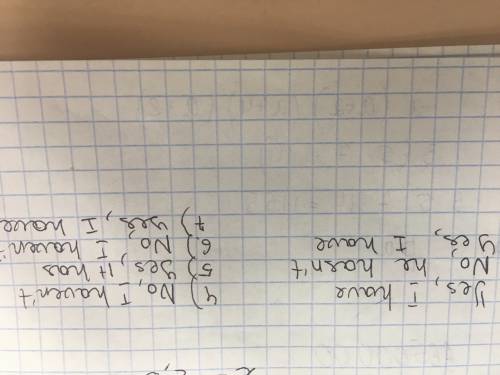 Yes, I have
No, he hasn't
Yes, I have
4) No, I haven't
5) Yes it has
6) No, I haven'
7) Yes, I have